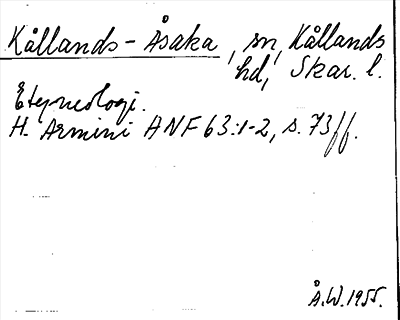 Kållands-Åsaka, sn, Kållands
hd, Skar. l.
Etymologi.
H. Armini ANF 63:1-2, s. 73ff.
Å.W. 1955.